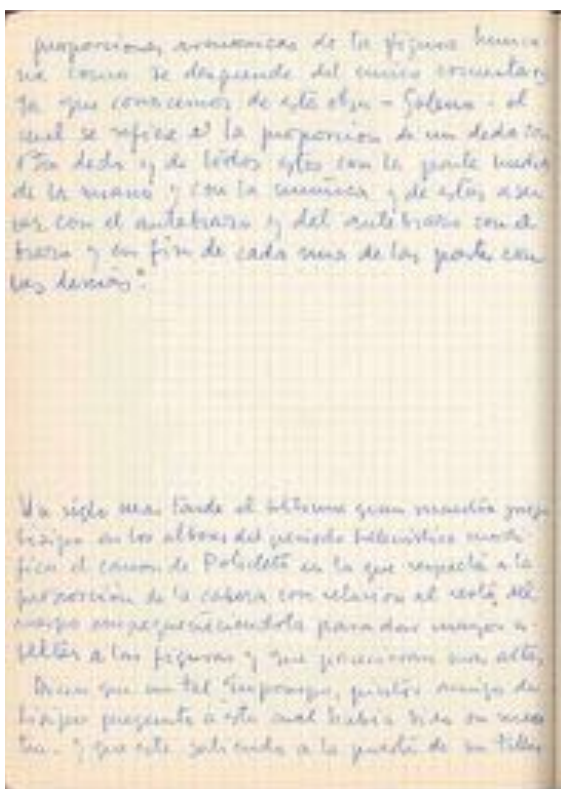 proporciones armonicas de la figura huma
na como se desprende del unico comentario
ta que conocemos de esta obra - Galeno - el
cual se refiere a "la proporcion de un dedo con
otro dedo y de todos estos con la parte media
de la mano y con la muñeca y de estos a su
vez con el antebrazo y del antebrazo con el
brazo y en fin de cada una de las partes con
las demás".
Un siglo mas tarde el último gran maestro griego
Lisipo en los albores del periodo helenistico modi
fica el canon de Policleto en lo que respecta a la
proporcion de la cabeza con relacion al resto del
cuerpo empequeñeciendola para dar mayor es
beltez a las figuras y que parecieran mas altas,
Dicen que un tal Eupompo, pintor amigo de
Lisipo pregunto a este cual habia sido su maes
tro. y que este saliendo a la puerta de su taller